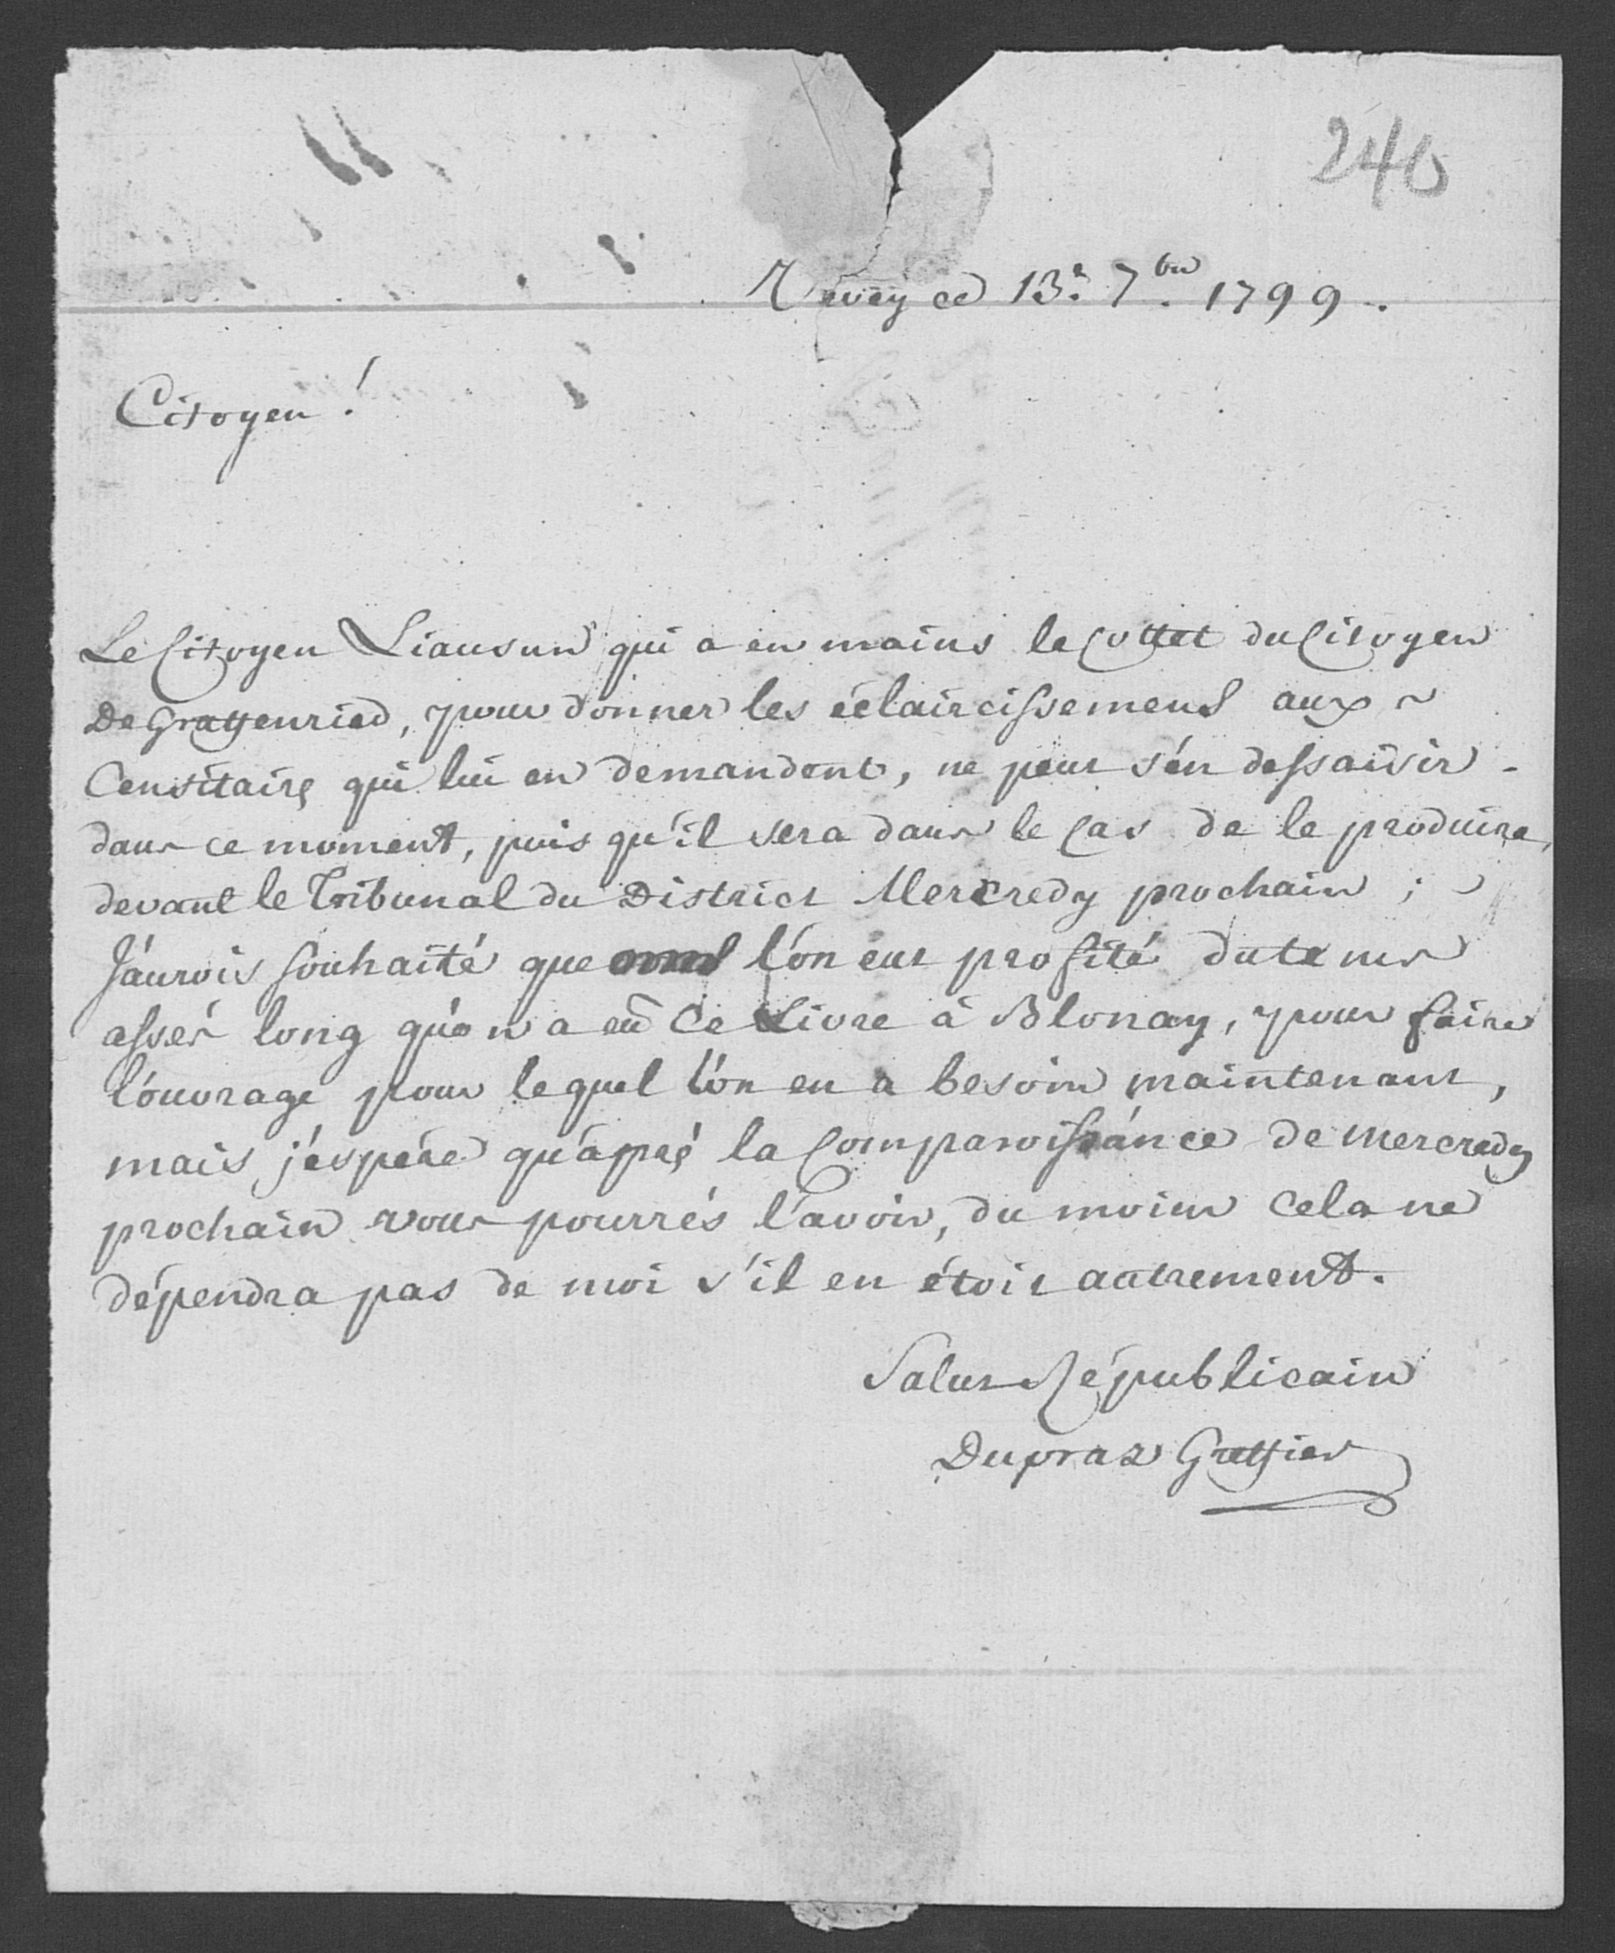 240
Vevey ce 13.e 7.bre 1799.
Citoyen !
Le Citoyen Liausun qui a en mains le Cottet du Citoyen
De Graffenried, pour donner les éclaircissemens aux
Censitaires qui lui en demandent, ne peut s'en dessaisir
dans ce moment, puis qu'il sera dans le Cas de le produire,
devant le Tribunal du District Mercredy prochain ;
J'aurois souhaité que l'on eut profité du tems
assés long qu'on a eû Ce Livre à Blonay, pour faire
l'ouvrage pour lequel l'on en a besoin maintenant,
mais j'espére qu'aprés la Comparoissance de Mercredy
prochain vous pourrés l'avoir, du moins Cela ne
dépendra pas de moi s'il en étoit autrement.
Salut Républicain
Dupraz Greffier